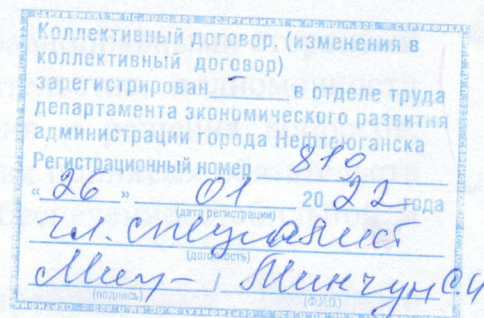 СЕРТИФИКАТ № ПС.RU.П.825 СЕРТИФИКАТ № ПС.RU.П.825 СЕРТИФИКАТ
Коллективный договор, (изменения в
коллективный договор)
зарегистрирован - в отделе труда
департамента экономического развития
администрации города Нефтеюганска
Регистрационный номер 810
«26» 01 2022 года
(дата регистрации)
гл. специалист
(должность)
/ Минчун С.И
(подпись) (Ф.И.О.)